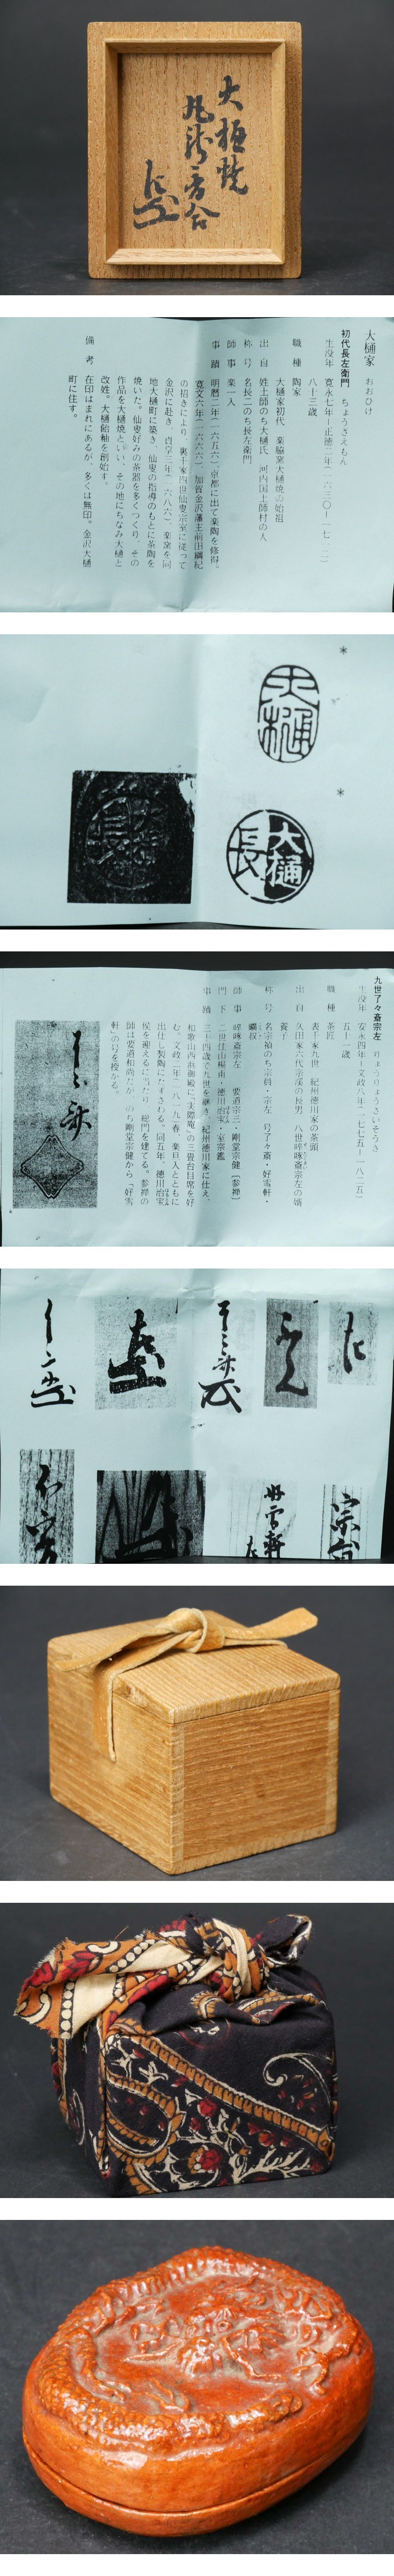 大樋焼
丸龍香合
左
大樋家 おおひけ
初代長左衛門 ちょうざえもん
生没年 寛永七年―正徳二年(一六三〇―一七一二)
八十三歳
職種 陶家
大樋家初代 楽脇窯大樋焼の始祖
出自 姓土師のち大樋氏、河内国土師村の人
称号 名長二のち長左衛門
師事 楽一入
事蹟 明暦二年(一六五六)、京都に出て楽陶を修得。
寛文六年(一六六六)、加賀金沢藩主前田綱紀
の招きにより、裏千家四世仙叟宗室に従って
金沢に赴き、貞享三年(一六八六)、楽窯を同
地大樋町に築き、仙叟の指導のもとに茶陶を
焼いた。仙叟好みの茶器を多くつくり、その
作品を大樋焼といい、その地にちなみ大樋と
改姓。大樋飴釉を創始す。
備考 在印はまれにあるが、多くは無印。金沢大樋
町に住す。
*
大樋
*
大樋
長
九世了々斎宗左 りょうりょうさいそうさ
生没年 安永四年―文政八年(一七七五―一八二五)
五十一歳
職種 茶匠
表千家九世 紀州徳川家の茶頭
出自 久田家六代宗渓の長男 八世啐啄斎宗左の婿
養子
称号 名宗禎のち宗員・宗左 号了々斎・好雪軒・
曠叔
師事 啐啄斎宗左 要道宗三・剛堂宗健〔参禅〕
門下 二世住山楊甫・徳川治宝・三室宗鑑
事蹟 三十四歳で九世を継ぎ、紀州徳川家に仕え、
和歌山西浜御殿に「実際庵」の三畳台目席を好
む。文政二年(一八一九)春、楽旦入とともに
出仕し製陶にたずさわる。同五年、徳川治宝
侯を迎えるに当たり、総門を建てる。参禅の
師は要道和尚だが、のち剛堂宗健から「好雪
軒」の号を授かる。
了々斎
左
好雪軒
左
宗左